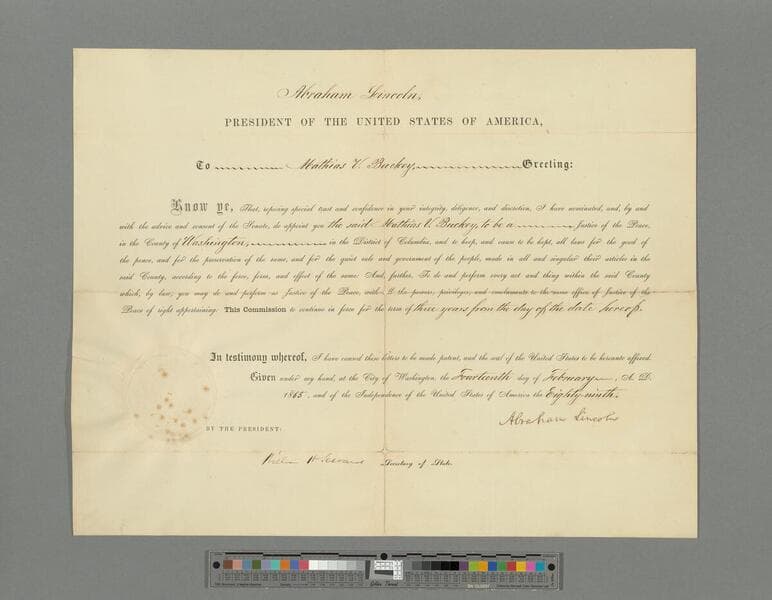 Abraham Lincoln,
PRESIDENT OF THE UNITED STATES OF AMERICA,
To Mathias V. Buckey, Greeting:
Know ye, That, reposing special trust and confidence in your integrity, diligence, and discretion, I have nominated, and, by and
with the advice and consent of the Senate, do appoint you the said Mathias V. Buckey, to be a Justice of the Peace,
in the County of Washington, in the District of Columbia, and to keep, and cause to be kept, all laws for the good of
the peace, and for the preservation of the same, and for the quiet rule and government of the people, made in all and singular their articles in the
said County, according to the force, form, and effect of the same: And, further, To do and perform every act and thing within the said County
which, by law, you may do and perform as Justice of the Peace, with all the powers, privileges, and emoluments to the same office of Justice of the
Peace of right appertaining. This Commission to continue in force for the term of three years from the day of the date hereof.
In testimony whereof, I have caused these letters to be made patent, and the seal of the United States to be hereunto affixed.
Given under my hand, at the City of Washington, the Fourteenth day of February, A. D.
1865, and of the Independence of the United States of America the Eighty-ninth.
Abraham Lincoln
BY THE PRESIDENT:
William H Seward Secretary of State.
Golden Thread